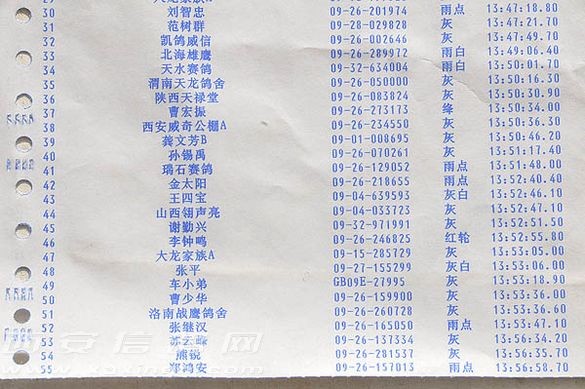 30 刘智忠 09-26-201974 雨点 13:47:18.80
31 范树群 09-28-029828 灰 13:47:21.70
32 凯鸽威信 09-26-002648 灰 13:47:49.70
33 北海雄鹰 09-26-289972 雨白 13:49:06.40
34 天水赛鸽 09-32-634004 雨白 13:50:01.70
35 渭南天龙鸽舍 09-26-050000 灰 13:50:16.30
36 陕西天禄堂 09-26-083824 灰 13:50:30.90
37 曹宏振 09-26-273173 绛 13:50:34.00
38 西安威奇公棚A 09-26-234550 灰 13:50:36.30
39 龚文芳B 09-01-008695 灰 13:50:46.20
40 孙锡禹 09-26-070261 灰 13:51:17.40
41 瑞石赛鸽 09-26-129052 雨点 13:51:48.00
42 金太阳 09-26-218655 雨点 13:52:40.40
43 王四宝 09-04-639593 灰白 13:52:46.10
44 山西翎声亮 09-04-033723 灰 13:52:47.10
45 谢勤兴 09-32-971991 灰 13:52:51.50
46 李钟鸣 09-26-246825 红轮 13:52:55.80
47 大龙家族A 09-15-285729 灰 13:53:05.00
48 张平 09-27-155299 灰白 13:53:06.00
49 车小弟 GB09E-27995 灰 13:53:18.90
50 曹少华 09-26-159900 灰 13:53:36.00
51 洛南战鹰鸽舍 09-26-260728 灰 13:53:36.60
52 张继汉 09-26-165050 雨点 13:53:47.10
53 09-26-137334 灰 13:56:34.20
54 熊锐 09-26-281537 灰 13:56:35.70
55 郑鸿安 09-26-157013 雨点 13:56:58.70